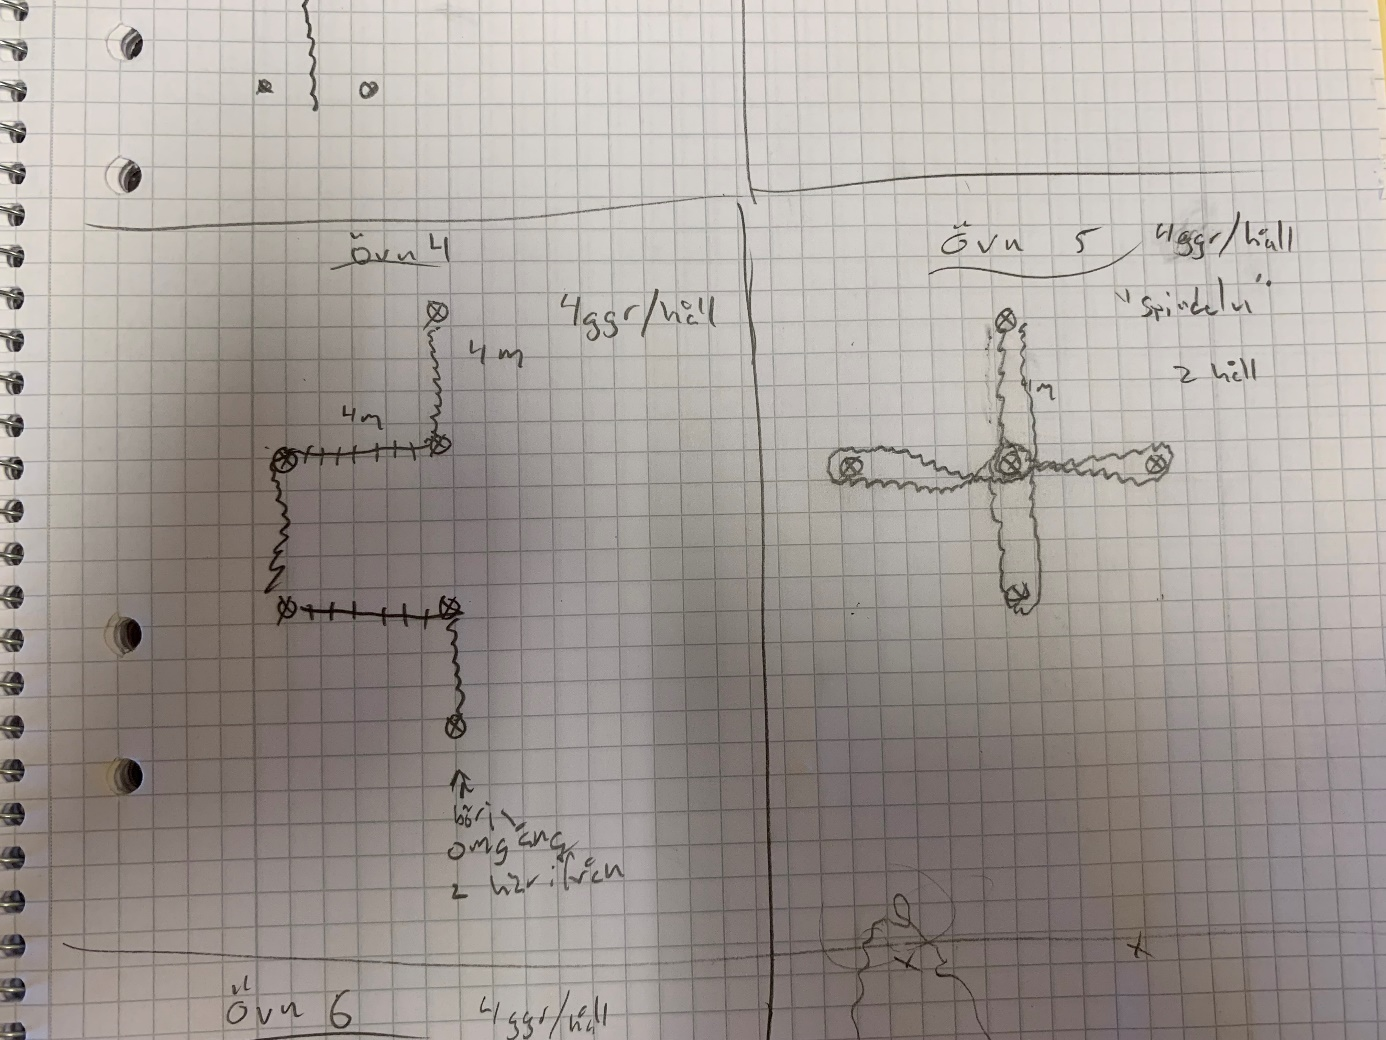 Övn 4
4ggr/håll
4 m
4m
börj
omgång
2 härifrån
Övn 5
4ggr/håll
"Spindeln"
2 håll
4m
Övn 6
4ggr/håll